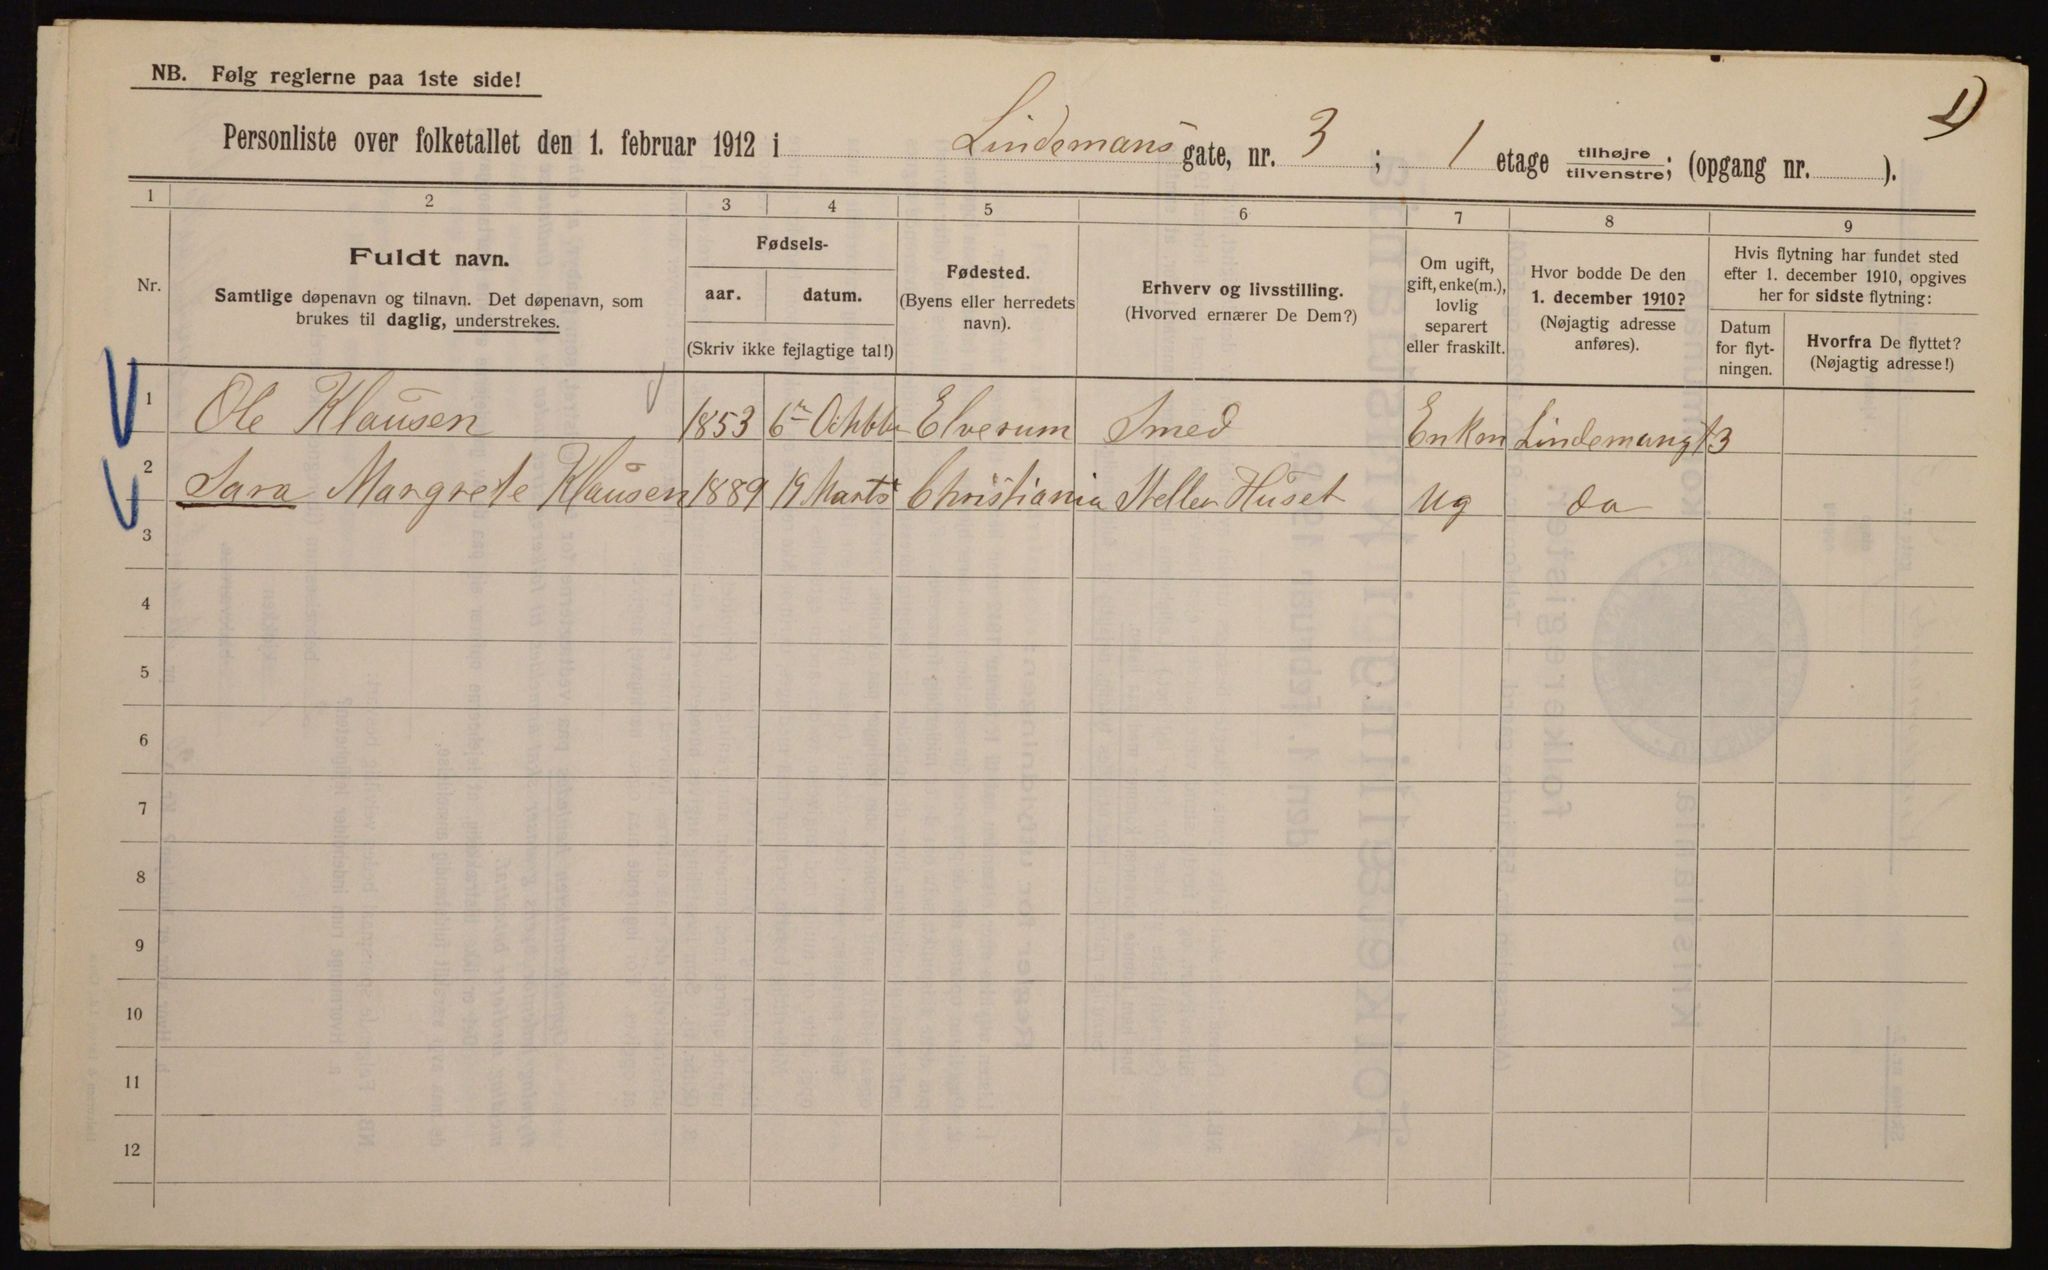 NB. Følg reglerne paa 1ste side!
1)
Personliste over folketallet den 1. februar 1912 i Lindemans gate, nr. 3 ; 1 etage tilhøjre tilvenstre; (opgang nr. ).
1 2 3 4 5 6 7 8 9
Nr.
Fuldt navn.
Samtlige døpenavn og tilnavn. Det døpenavn, som
brukes til daglig, understrekes.
Fødsels-
aar. datum.
(Skriv ikke fejlagtige tal!)
Fødested.
(Byens eller herredets
navn).
Erhverv og livsstilling.
(Hvorved ernærer De Dem?)
Om ugift,
gift, enke(m.),
lovlig
separert
eller fraskilt.
Hvor bodde De den
1. december 1910?
(Nøjagtig adresse
anføres).
Hvis flytning har fundet sted
efter 1. december 1910, opgives
her for sidste flytning:
Datum
for flyt-
ningen.
Hvorfra De flyttet?
(Nøjagtig adresse!)
1 Ole Klausen 1853 Elverum Smed Enkm Lindemansgt 3
2 Sara Margrete Klausen 1889 19 Marts Christiania Steller Huset Ug do
3
4
5
6
7
8
9
10
11
12